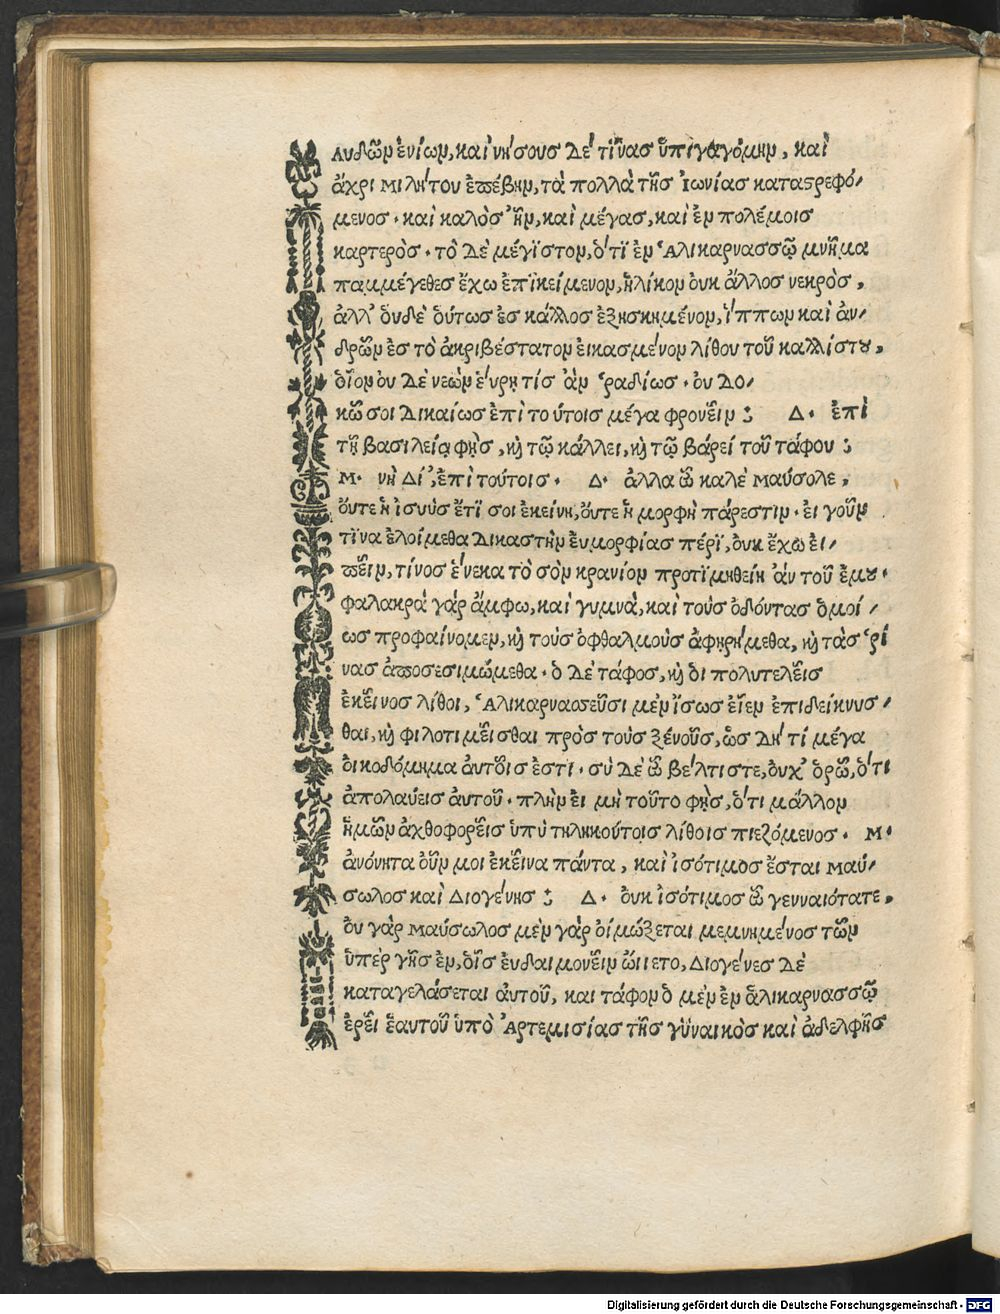 λυδῶν ἐνίων, καὶ νήσους δέ τίνας ὕπιγαγόμην, καὶ
ἄχρι μιλήτου ἐπέβην, τὰ πολλὰ τῆς Ἰωνίας καταστρεφό/
μενος· καὶ καλὸς ἦν, καὶ μέγας, καὶ ἐν πολέμοις
καρτερὸς· τὸ δὲ μέγϊστον, ὅτϊ ἐν Ἁλικαρνασσῷ μνῆμα
παμμέγεθες ἔχω ἐπϊκείμενον, ἡλίκον ὀυκ ἄλλος νεκρὸς,
ἀλλ' ὀυδὲ ὁύτως ἐς κάλλος ἐξησκημένον, ἵππων καὶ ἀν/
δρῶν ἐς τὸ ἀκριβέστατον εικασμένον λίθου τοῦ καλλίστου,
ὁῖον ὀυ δὲ νεὼν ἑύρῃ τίς ἀν ῥαδίως· ὀυ δο/
κῶ σοι δικαίως ἐπὶ τούτοις μέγα φρονεῖν ; Δ· ἐπὶ
τῇ βασιλείᾳ φῂς, καὶ τῷ κάλλει, καὶ τῷ βάρεί τοῦ τάφου ;
Μ· νὴ Δί', ἐπὶ τούτοις· Δ· ἀλλα ὦ καλὲ μαύσολε,
ὄυτε ἡ ισυὺς ἔτϊ σοι ἐκείνη, ὄυτε ἡ μορφὴ πάρεστιν· ἐι γοῦν
τϊνα ἑλοίμεθα δικαστὴν ἐυμορφίας πέρϊ, ὀυκ ἔχω ἐι/
πεῖν, τίνος ἕνεκα τὸ σὸν κρανίον προτϊμηθείη ἀν τοῦ ἐμου·
φαλακρὰ γάρ ἄμφω, καὶ γυμνὰ, καὶ τοὺς ὀδόντας ὁμοί/
ως προφαίνομεν, καὶ τοὺς ὀφθαλμοὺς ἀφῃρήμεθα, καὶ τὰς ῥϊ
νας ἀποσεσιμώμεθα· ὁ δὲ τάφος, καὶ ὁι πολυτελεῖς
ἐκεῖνος λίθοι, Ἁλικαρνασεῦσι μὲν ἴσως ἐῖεν ἐπιδείκνυσ/
θαι, καὶ φιλοτιμεῖσθαι πρὸς τοὺς ξένοῦς, ὡς δή τί μέγα
ὀικοδόμημα ἀυτοῖς ἐστι· σὺ δὲ ὦ βέλτιστε, ὀυχ' ὁρῶ, ὅτι
ἀπολαύεις ἀυτοῦ· πλὴν ἐι μὴ τοῦτο φῂς, ὅτι μάλλον
ἡμῶν ἀχθοφορεῖς ὑπὺ τηλικούτοις λίθοις πιεζόμενος· Μ·
ἀνόνητα ὀῦν μοι ἐκεῖνα πάντα, καὶ ἰσότιμος ἔσται μαύ/
σωλος καὶ Διογένης ; Δ· ὀυκ ἰσότιμος ὦ γενναιότατε,
ὀυ γὰρ μαύσωλος μὲν γὰρ ὀιμώξεται μεμνημένος τῶν
ὑπὲρ γῆς ἐν, ὁῖς ἐυδαιμονεῖν ὤιετο, Διογένες δὲ
καταγελάσεται ἀυτοῦ, καὶ τάφον ὁ μὲν ἐν ἁλικαρνασσῷ
ἐρεῖ ἑαυτοῦ ὑπὸ Ἀρτεμισίας τῆς γϋναικὸς καὶ ἀδελφῆς
Digitalisierung gefördert durch die Deutsche Forschungsgemeinschaft - DFG